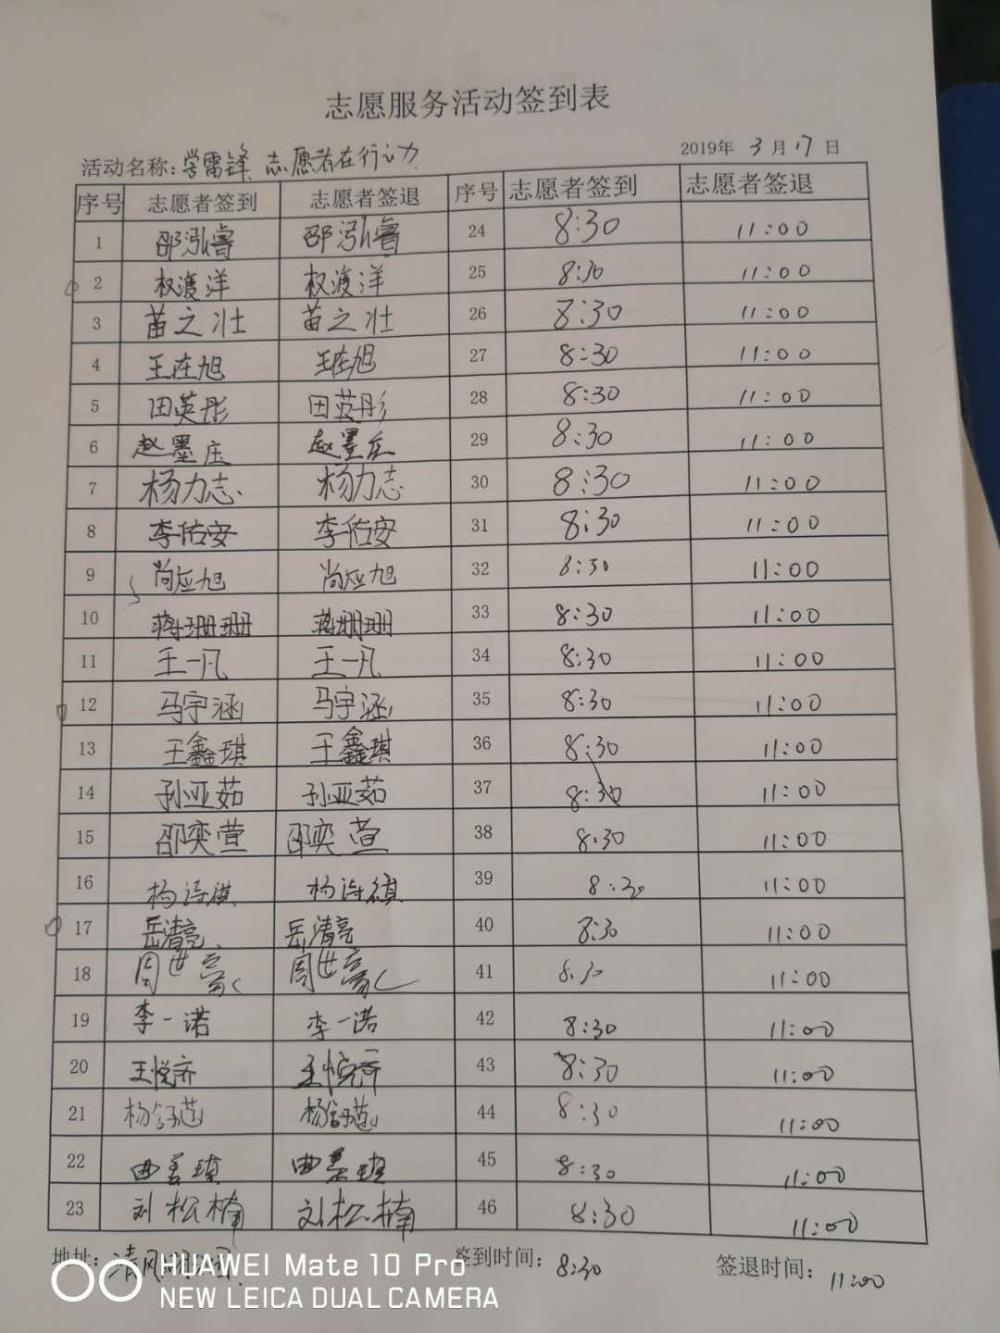 志愿服务活动签到表
活动名称：学雷锋 志愿者在行动 2019年 3月17日
序号 志愿者签到 志愿者签退 序号 志愿者签到 志愿者签退
1 邵泓睿 邵泓睿 24 8:30 11:00
2 权渡洋 权渡洋 25 8:30 11:00
3 苗之壮 苗之壮 26 8:30 11:00
4 王在旭 王在旭 27 8:30 11:00
5 田英彤 田英彤 28 8:30 11:00
6 赵墨庄 赵墨庄 29 8:30 11:00
7 杨力志 杨力志 30 8:30 11:00
8 李佑安 李佑安 31 8:30 11:00
9 尚应旭 尚应旭 32 8:30 11:00
10 蒋珊珊 蒋珊珊 33 8:30 11:00
11 王一凡 王一凡 34 8:30 11:00
12 马宇涵 马宇涵 35 8:30 11:00
13 王鑫琪 王鑫琪 36 8:30 11:00
14 孙亚茹 孙亚茹 37 8:30 11:00
15 邵奕萱 邵奕萱 38 8:30 11:00
16 杨诗祺 杨诗祺 39 8:30 11:00
17 岳清亮 岳清亮 40 8:30 11:00
18 周世豪 周世豪 41 8:30 11:00
19 李一诺 李一诺 42 8:30 11:00
20 王悦齐 王悦齐 43 8:30 11:00
21 44 8:30 11:00
22 45 8:30 11:00
23 刘松楠 刘松楠 46 8:30 11:00
地址：清风 签到时间：8:30 签退时间：11:00
HUAWEI Mate 10 Pro
NEW LEICA DUAL CAMERA